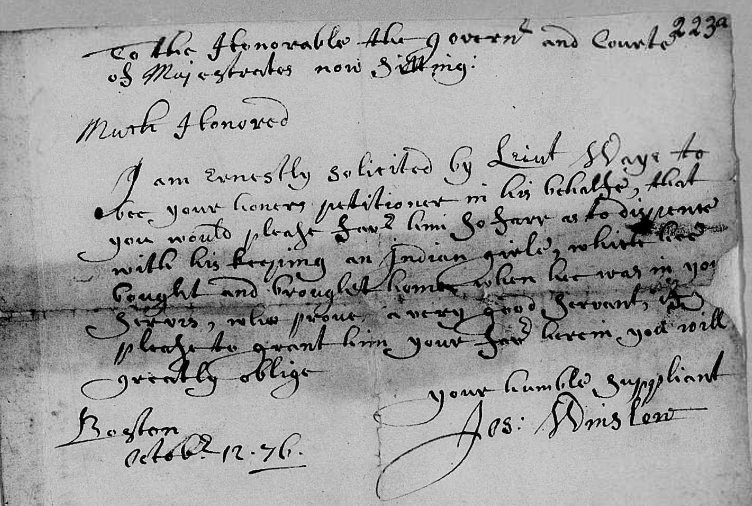 223a
To the Honorable the Governr and Courte
of Majestrates now Sitting:
Much Honored
I am Ernestly Solicited by Leiut Wayt to
bee your honers petitioner in his behalfe, that
you would please favr him so farr as to dispence
with his keeping an Indian girle, which hee
bought and brought home when hee was in yor
Servis, who proves a very good Servant,
please to grant him your favr herein you will
greatly oblige
your humble Suppliant
Jos: Winslow
Boston
Octobr 12. 76.